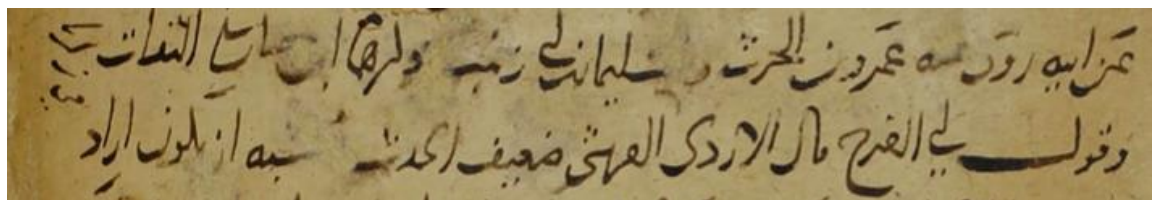 عن ابيه روى عنه عمرو بن الحرث و سليمان بن ابي زينب ذكرهما ابن حبان في الثقات
وقول ابي الفرج قال الازدي الفهمي ضعيف الحديث يشبه ان يكون اراد